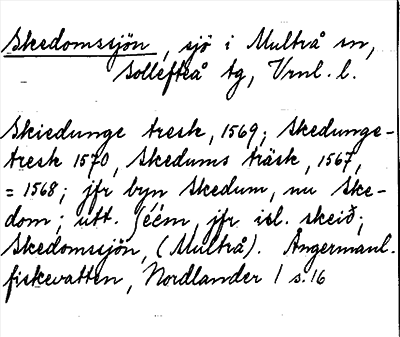 Skedomssjön, sjö i Multrå sn,
Sollefteå tg, Vrnl. l.
Skiedunge tresk, 1569; Skedunge-
tresk 1570, Skedums träsk, 1567,
= 1568; jfr byn Skedum, nu Ske-
dom; utt. ʃéém, jfr isl. skeið;
Skedomssjön, (Multrå). Ångermanl.
fiskevatten, Nordlander / s. 16